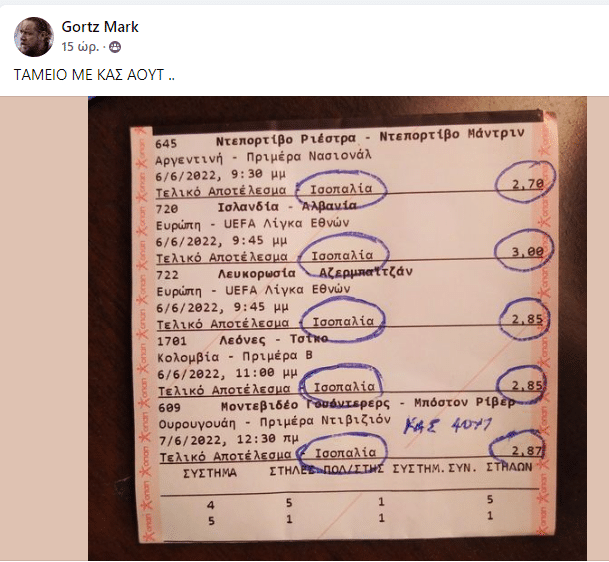 Gortz Mark
15 ώρ. ·
ΤΑΜΕΙΟ ΜΕ ΚΑΣ ΑΟΥΤ ..
645 Ντεπορτίβο Ριέστρα - Ντεπορτίβο Μάντριν
Αργεντινή - Πριμέρα Νασιονάλ
6/6/2022, 9:30 μμ
Τελικό Αποτέλεσμα - Ισοπαλία 2,70
720 Ισλανδία - Αλβανία
Ευρώπη - UEFA Λίγκα Εθνών
6/6/2022, 9:45 μμ
Τελικό Αποτέλεσμα - Ισοπαλία 3,00
722 Λευκορωσία - Αζερμπαϊτζάν
Ευρώπη - UEFA Λίγκα Εθνών
6/6/2022, 9:45 μμ
Τελικό Αποτέλεσμα - Ισοπαλία 2,85
1701 Λεόνες - Τσίκο
Κολομβία - Πριμέρα Β
6/6/2022, 11:00 μμ
Τελικό Αποτέλεσμα - Ισοπαλία 2,85
609 Μοντεβιδέο Γουόντερερς - Μπόστον Ρίβερ
Ουρουγουάη - Πριμέρα Ντιβιζιόν ΚΑΣ ΑΟΥΤ
7/6/2022, 12:30 πμ
Τελικό Αποτέλεσμα - Ισοπαλία 2,87
ΣΥΣΤΗΜΑ ΣΤΗΛΕΣ ΠΟΛ/ΣΤΗΣ ΣΥΣΤΗΜ. ΣΥΝ. ΣΤΗΛΩΝ
4 5 1 5
5 1 1 1